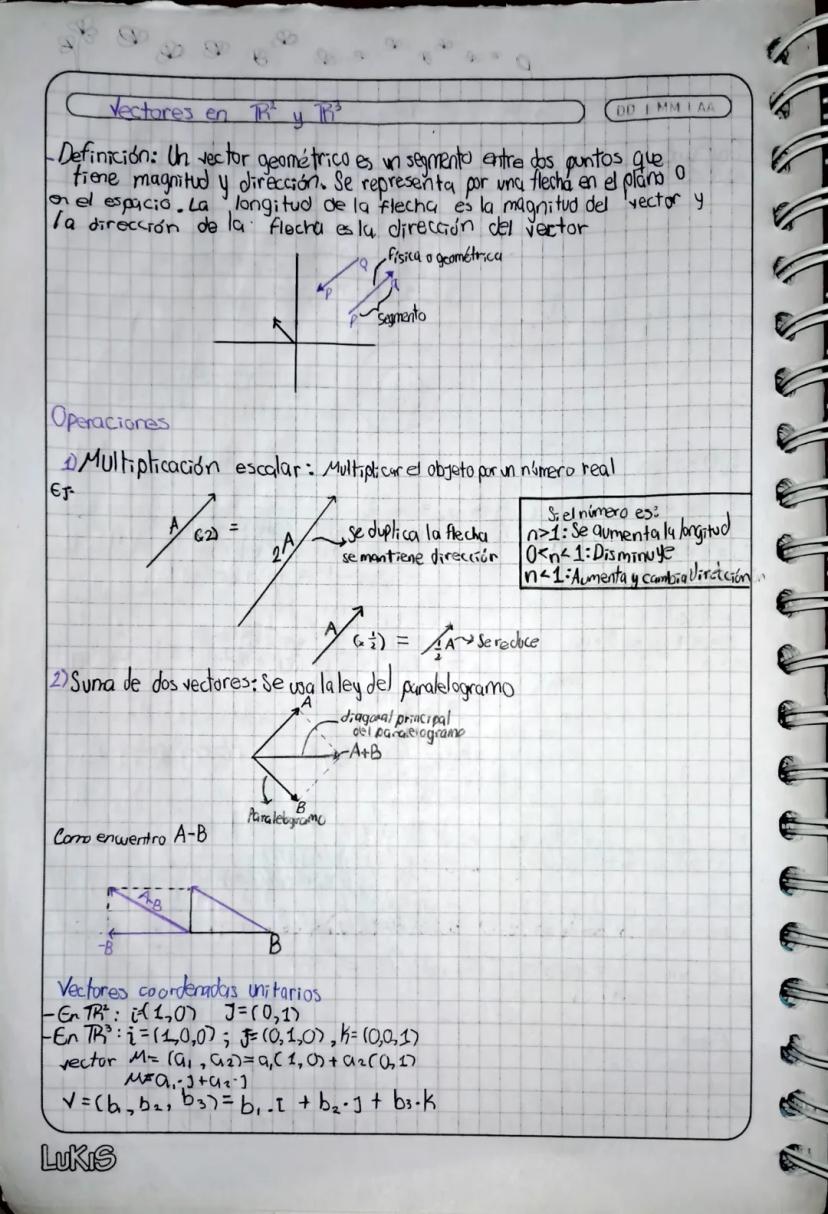 Vectores en ℝ² y ℝ³
DD | MM | AA
- Definición: Un vector geométrico es un segmento entre dos puntos que
tiene magnitud y dirección. Se representa por una flecha en el plano o
en el espacio. La longitud de la flecha es la magnitud del vector y
la dirección de la flecha es la dirección del vector
Q física o geométrica
P
P segmento
Operaciones
1) Multiplicación escalar: Multiplicar el objeto por un número real
Ej-
A (·2) = 2A
se duplica la flecha
se mantiene dirección
Si el número es:
n>1: Se aumenta la longitud
0<n<1: Disminuye
n<1: Aumenta y cambia dirección
A (× 1/2) = 1/2 A → Se reduce
2) Suma de dos vectores: Se usa la ley del paralelogramo
A
diagonal principal
del paralelogramo
A+B
B
Paralelogramo
Como encuentro A-B
A-B
-B B
Vectores coordenadas unitarios
- En ℝ²: i=(1,0) J=(0,1)
- En ℝ³: i=(1,0,0); J=(0,1,0), k=(0,0,1)
vector M= (a₁, a₂)=a₁(1,0)+a₂(0,1)
M=a₁·J+a₂·J
V=(b₁, b₂, b₃)= b₁·I + b₂·J + b₃·k
LUKIS